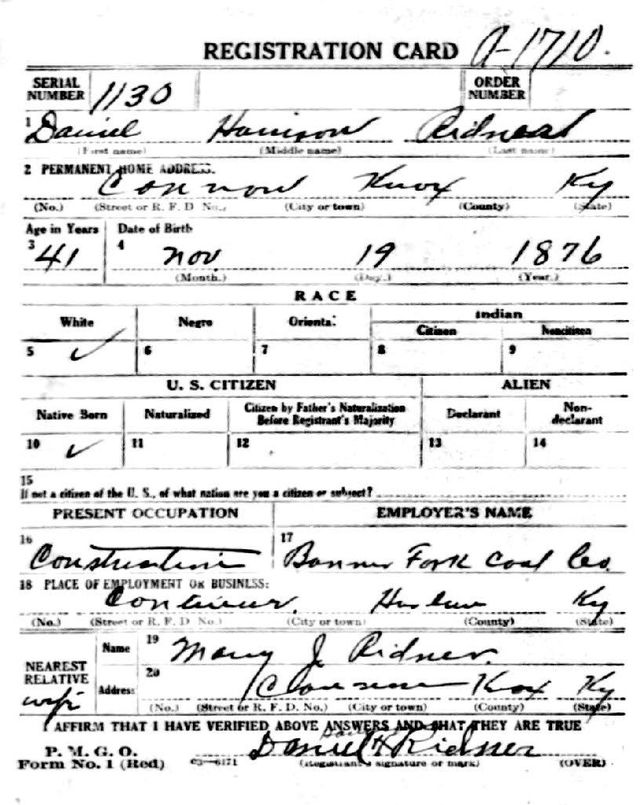 REGISTRATION CARD A-1710.
SERIAL NUMBER 1130 ORDER NUMBER
1 Daniel Harrison
(First name) (Middle name) (Last name)
2 PERMANENT HOME ADDRESS:
Knox Ky
(No.) (Street or R. F. D. No.) (City or town) (County) (State)
Age in Years Date of Birth
3 41 4 Nov 19 1876
(Month.) (Day.) (Year.)
RACE
White Negro Oriental Indian
Citizen Noncitizen
5 ✓ 6 7 8 9
U. S. CITIZEN ALIEN
Native Born Naturalized Citizen by Father's Naturalization Before Registrant's Majority Declarant Non-declarant
10 ✓ 11 12 13 14
15
If not a citizen of the U. S., of what nation are you a citizen or subject?
PRESENT OCCUPATION EMPLOYER'S NAME
16 Construction 17 Banner Fork Coal Co.
18 PLACE OF EMPLOYMENT OR BUSINESS:
Harlan Ky
(No.) (Street or R. F. D. No.) (City or town) (County) (State)
NEAREST RELATIVE wife Name 19 Mary J Ridner
Address 20 Knox Ky
(No.) (Street or R. F. D. No.) (City or town) (County) (State)
I AFFIRM THAT I HAVE VERIFIED ABOVE ANSWERS AND THAT THEY ARE TRUE
P. M. G. O. Daniel H Ridner
Form No. 1 (Red) 03—6171 (Registrant's signature or mark) (OVER)